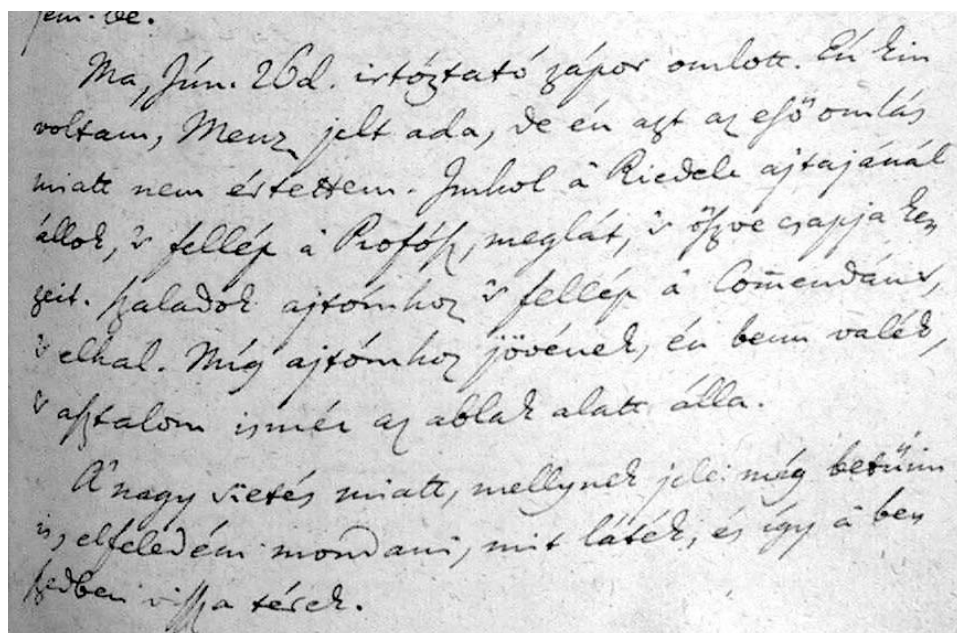 jem-be.
Ma, Jún. 26d. irtóztató zápor omlott. Én kin
voltam, Menz jelt ada, de én azt az eső omlás
miatt nem értettem. Imhol a' Riedele ajtajánál
állok, 's fellép a' Profósz, meglát, 's öszve csapja kez
zeit. Szaladok ajtómhoz 's fellép a' Com̄endáns,
's elhal. Míg ajtómhoz jövének, én benn valék,
's asztalom ismét az ablak alatt álla.
A' nagy sietés miatt, mellynek jelei még betűim
is, elfeledém mondani, mit láték, és így a' bes
szédben vissza térek.